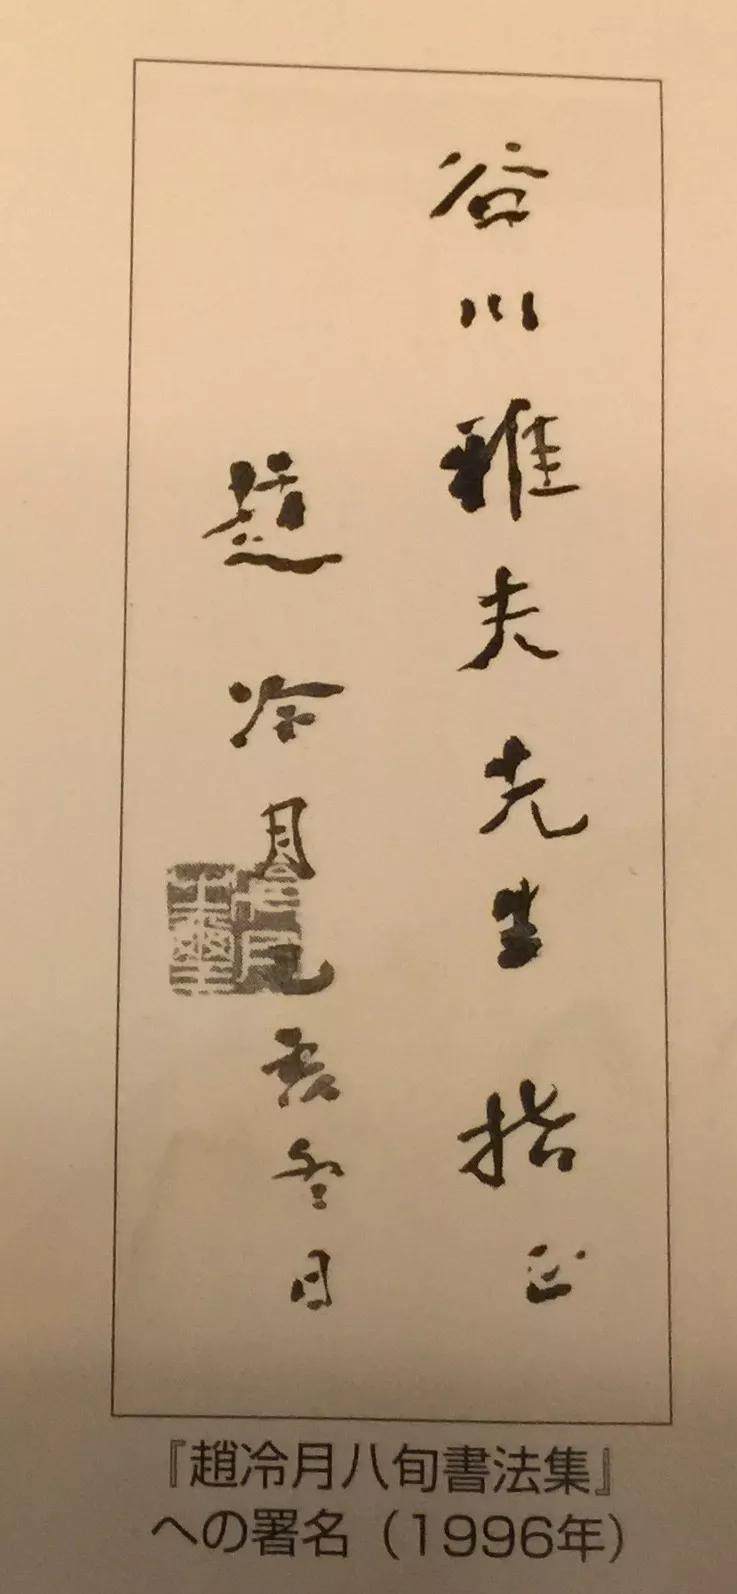 谷川雅夫先生指正
趙冷月乙亥冬日
『趙冷月八旬書法集』
への署名（1996年）